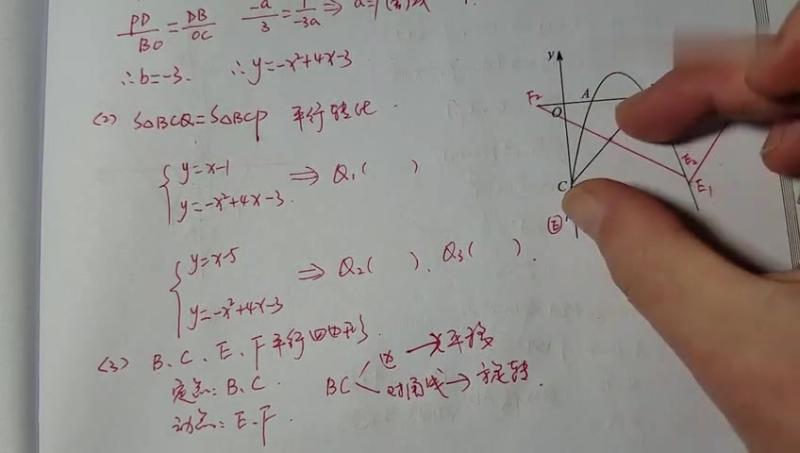 PD/BO = DB/OC
-a/3 = 1/-3a ⇒ a=1
∴b=-3. ∴y=-x²+4x-3
(2) S△BCQ=S△BCP 平行转化
{ y=x-1
y=-x²+4x-3. ⇒ Q₁( )
{ y=x-5
y=-x²+4x-3 ⇒ Q₂( )、Q₃( ).
(3) B、C、E、F平行四边形
定点:B、C.
动点:E、F.
BC
边 → 平移
对角线 → 旋转.
y
A
F₂
O
C
E
E₂
E₁